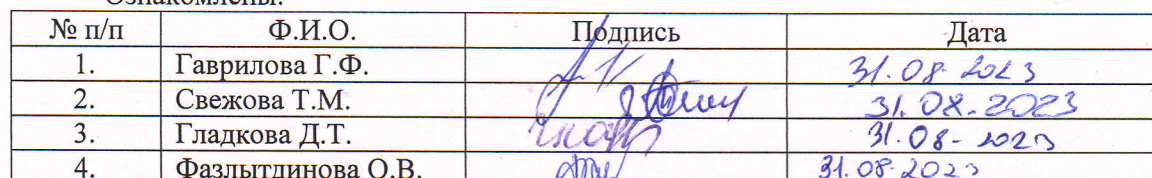 Ознакомлены:
№ п/п Ф.И.О. Подпись Дата
1. Гаврилова Г.Ф. 31.08.2023
2. Свежова Т.М. 31.08.2023
3. Гладкова Д.Т. 31.08-2023
4. Фазлытдинова О.В. 31.08.2023